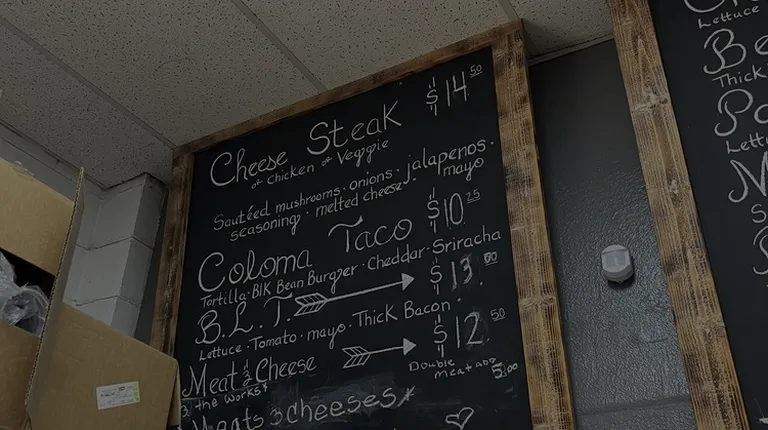 Cheese Steak $14.50
or Chicken or Veggie
Sautéed mushrooms · onions · jalapenos ·
seasoning · melted cheese · mayo
Coloma Taco $10.25
Tortilla · Blk Bean Burger · Cheddar · Sriracha
B.L.T. $13.00
Lettuce · Tomato · mayo · Thick Bacon ·
Meat & Cheese $12.50
& the works!
Double meat add 5.00
Meats 3 cheeses
Lettuce
Be
Thick
Lett